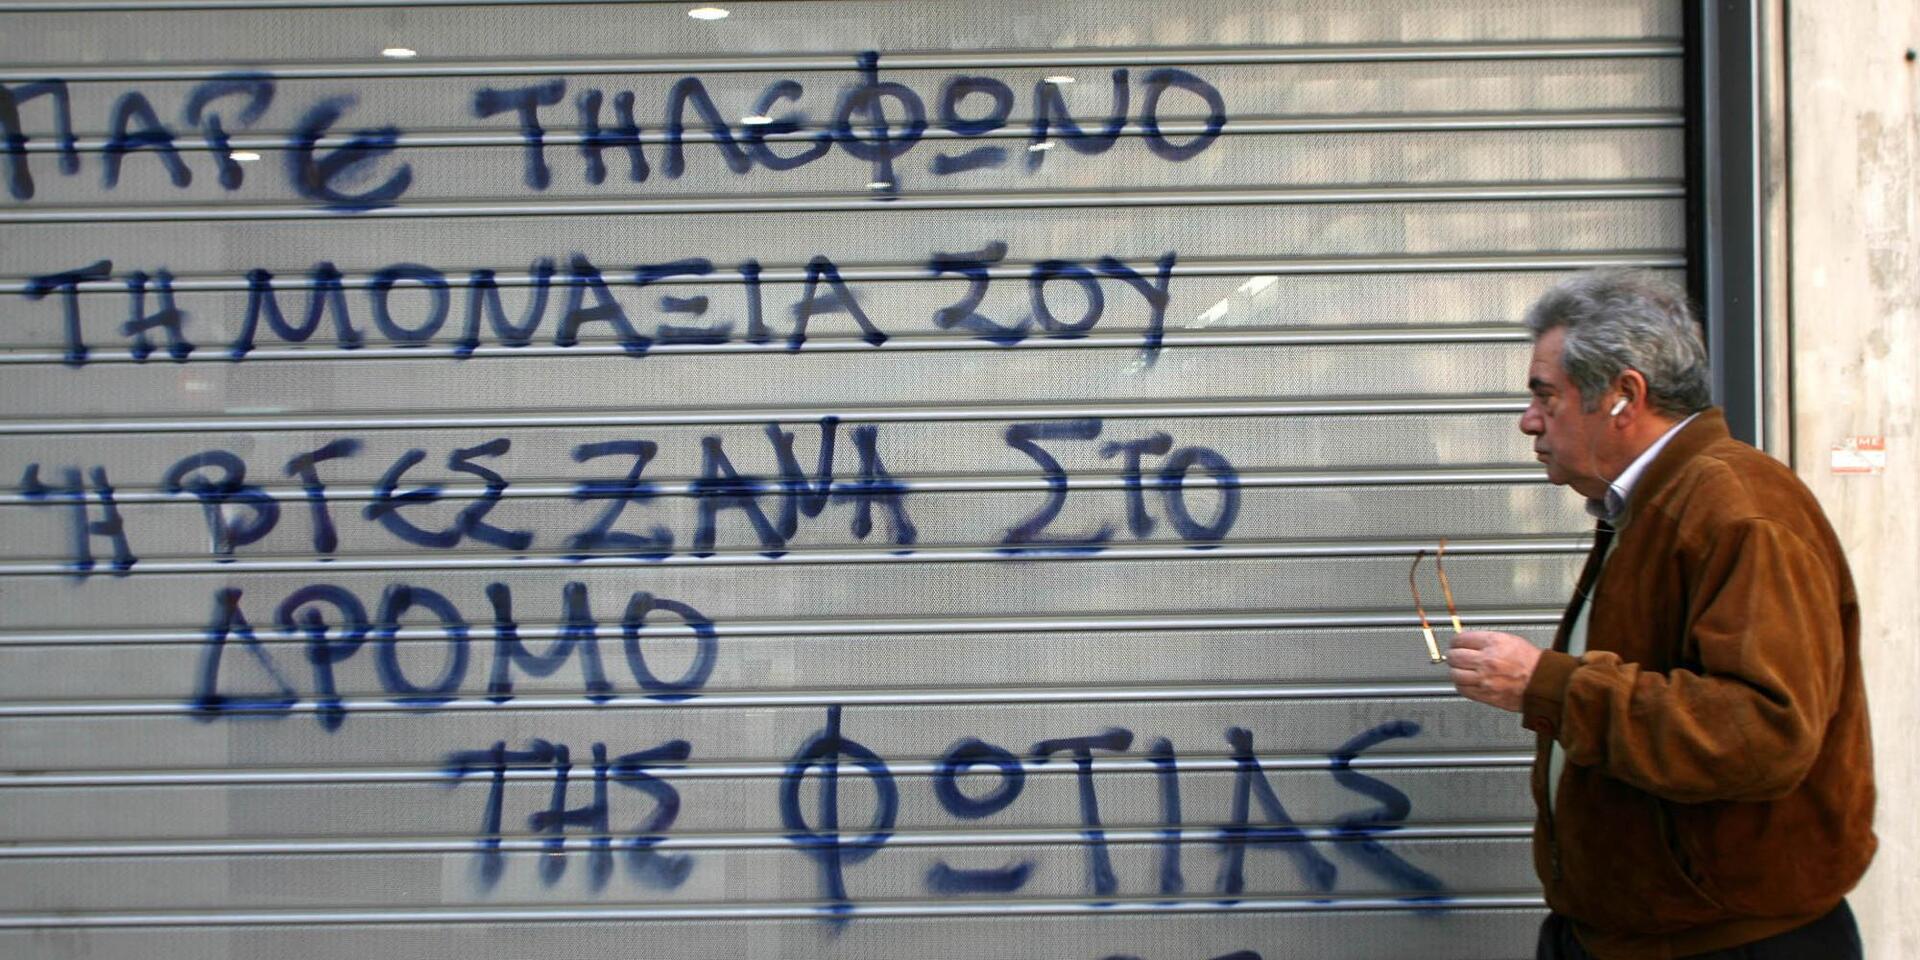 ΠΑΡΕ ΤΗΛΕΦΩΝΟ
ΤΗ ΜΟΝΑΞΙΑ ΣΟΥ
Ή ΒΓΕΣ ΞΑΝΑ ΣΤΟ
ΔΡΟΜΟ
ΤΗΣ ΦΩΤΙΑΣ